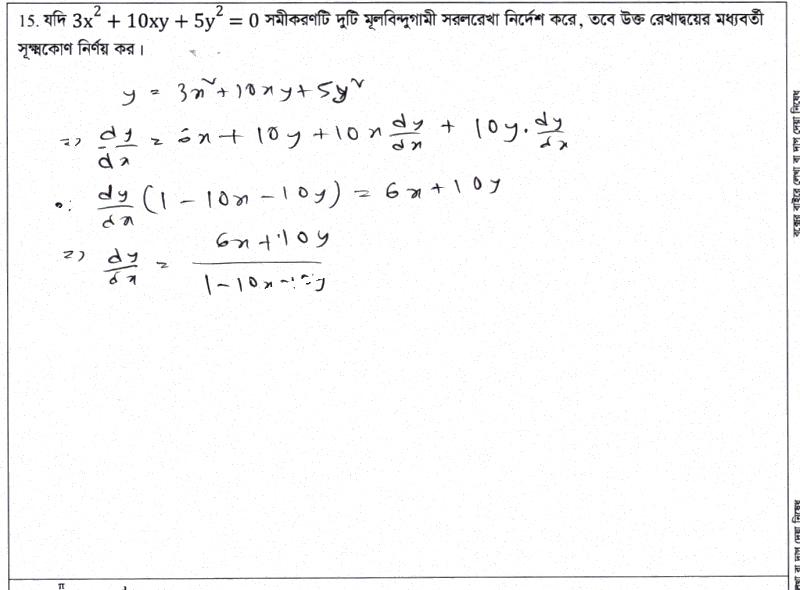 15. যদি 3x² + 10xy + 5y² = 0 সমীকরণটি দুটি মূলবিন্দুগামী সরলরেখা নির্দেশ করে, তবে উক্ত রেখাদ্বয়ের মধ্যবর্তী
সূক্ষ্মকোণ নির্ণয় কর।
y = 3x² + 10xy + 5y²
=) dy/dx = 6x + 10y + 10x dy/dx + 10y. dy/dx
∴ dy/dx (1 - 10x - 10y) = 6x + 10y
=) dy/dx = 6x + 10y / 1 - 10x - 10y
বক্সের বাইরে লেখা বা দাগ দেয়া নিষেধ
লেখা বা দাগ দেয়া নিষেধ
π